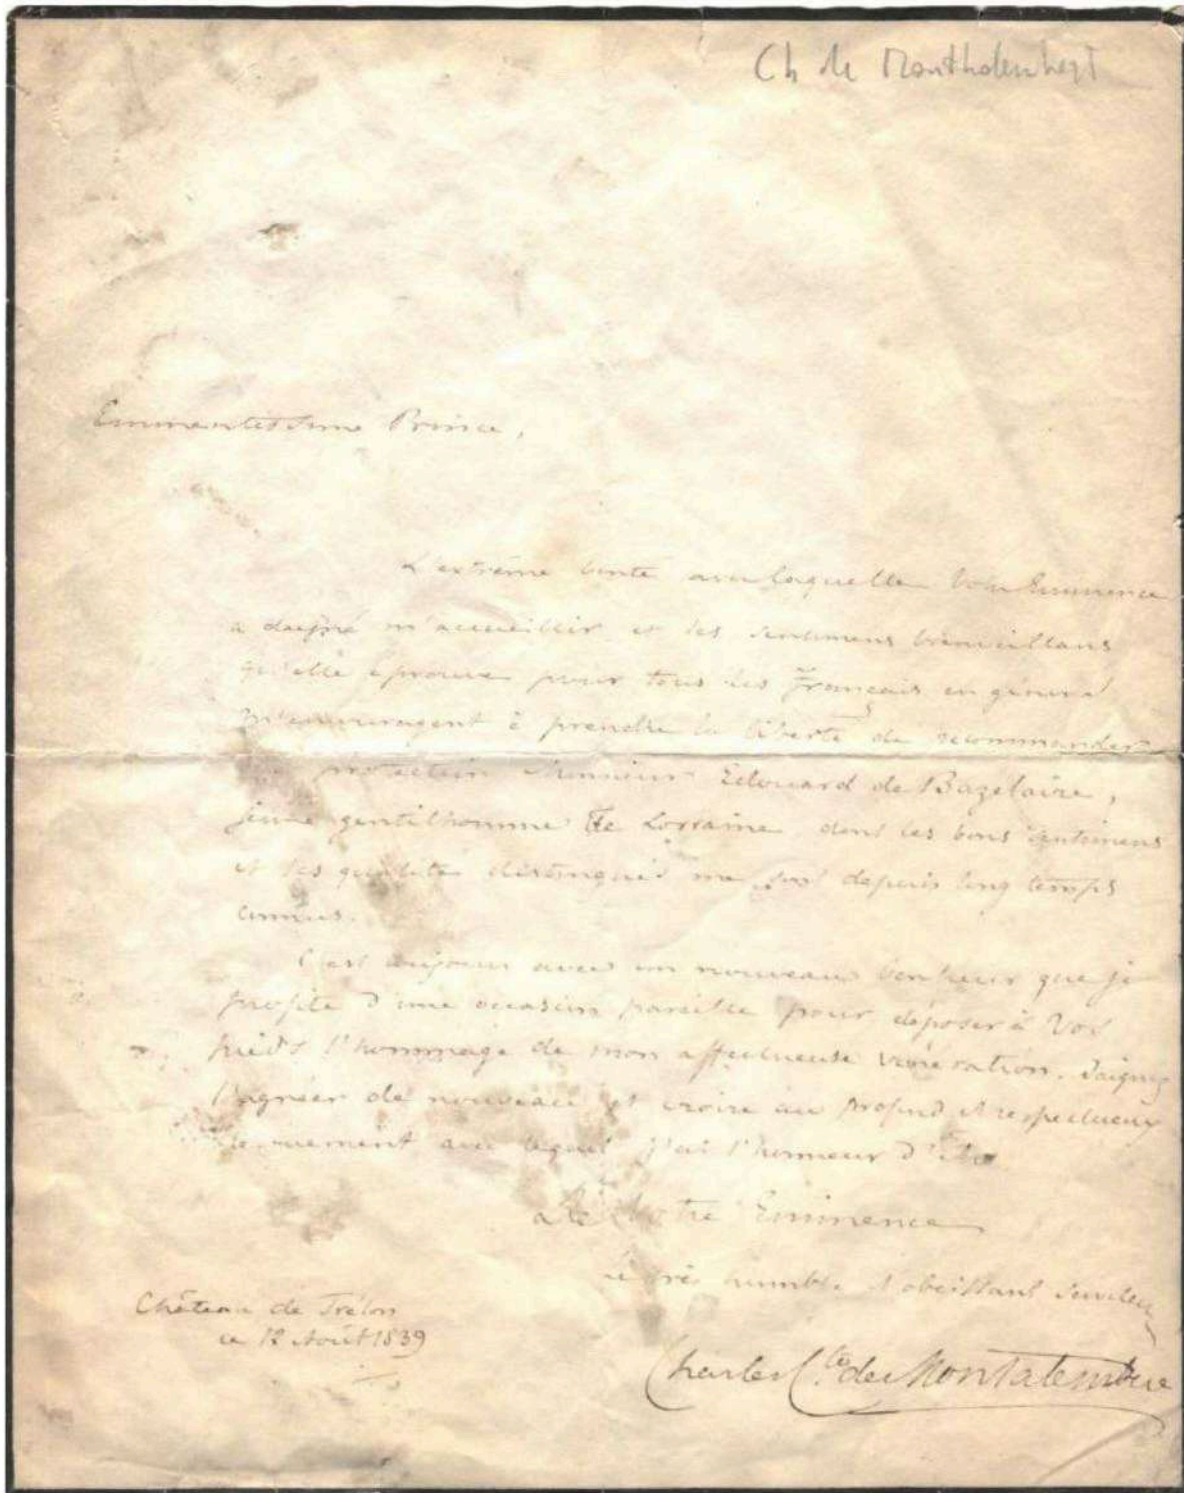 Ch de
Eminentissime Prince,
L'extrême bonté avec laquelle Votre Eminence
a daigné m'accueillir et les sentimens bienveillans
qu'elle éprouve pour tous les Français en général
m'encouragent à prendre la liberté de recommander
protection Monsieur Edouard de Bazelaire,
jeune gentilhomme de Lorraine dont les bons sentimens
et les qualités distinguées me sont depuis long temps
connus.
C'est toujours avec un nouveau bonheur que je
profite d'une occasion pareille pour déposer à Vos
pieds l'hommage de mon affectueuse vénération. Daignez
l'agréer de nouveau et croire au profond et respectueux
avec lequel j'ai l'honneur d'être
de Votre Eminence
le très humble et obéissant serviteur
Château de Trélon
ce 12 Août 1839
Charles Cte de Montalembert